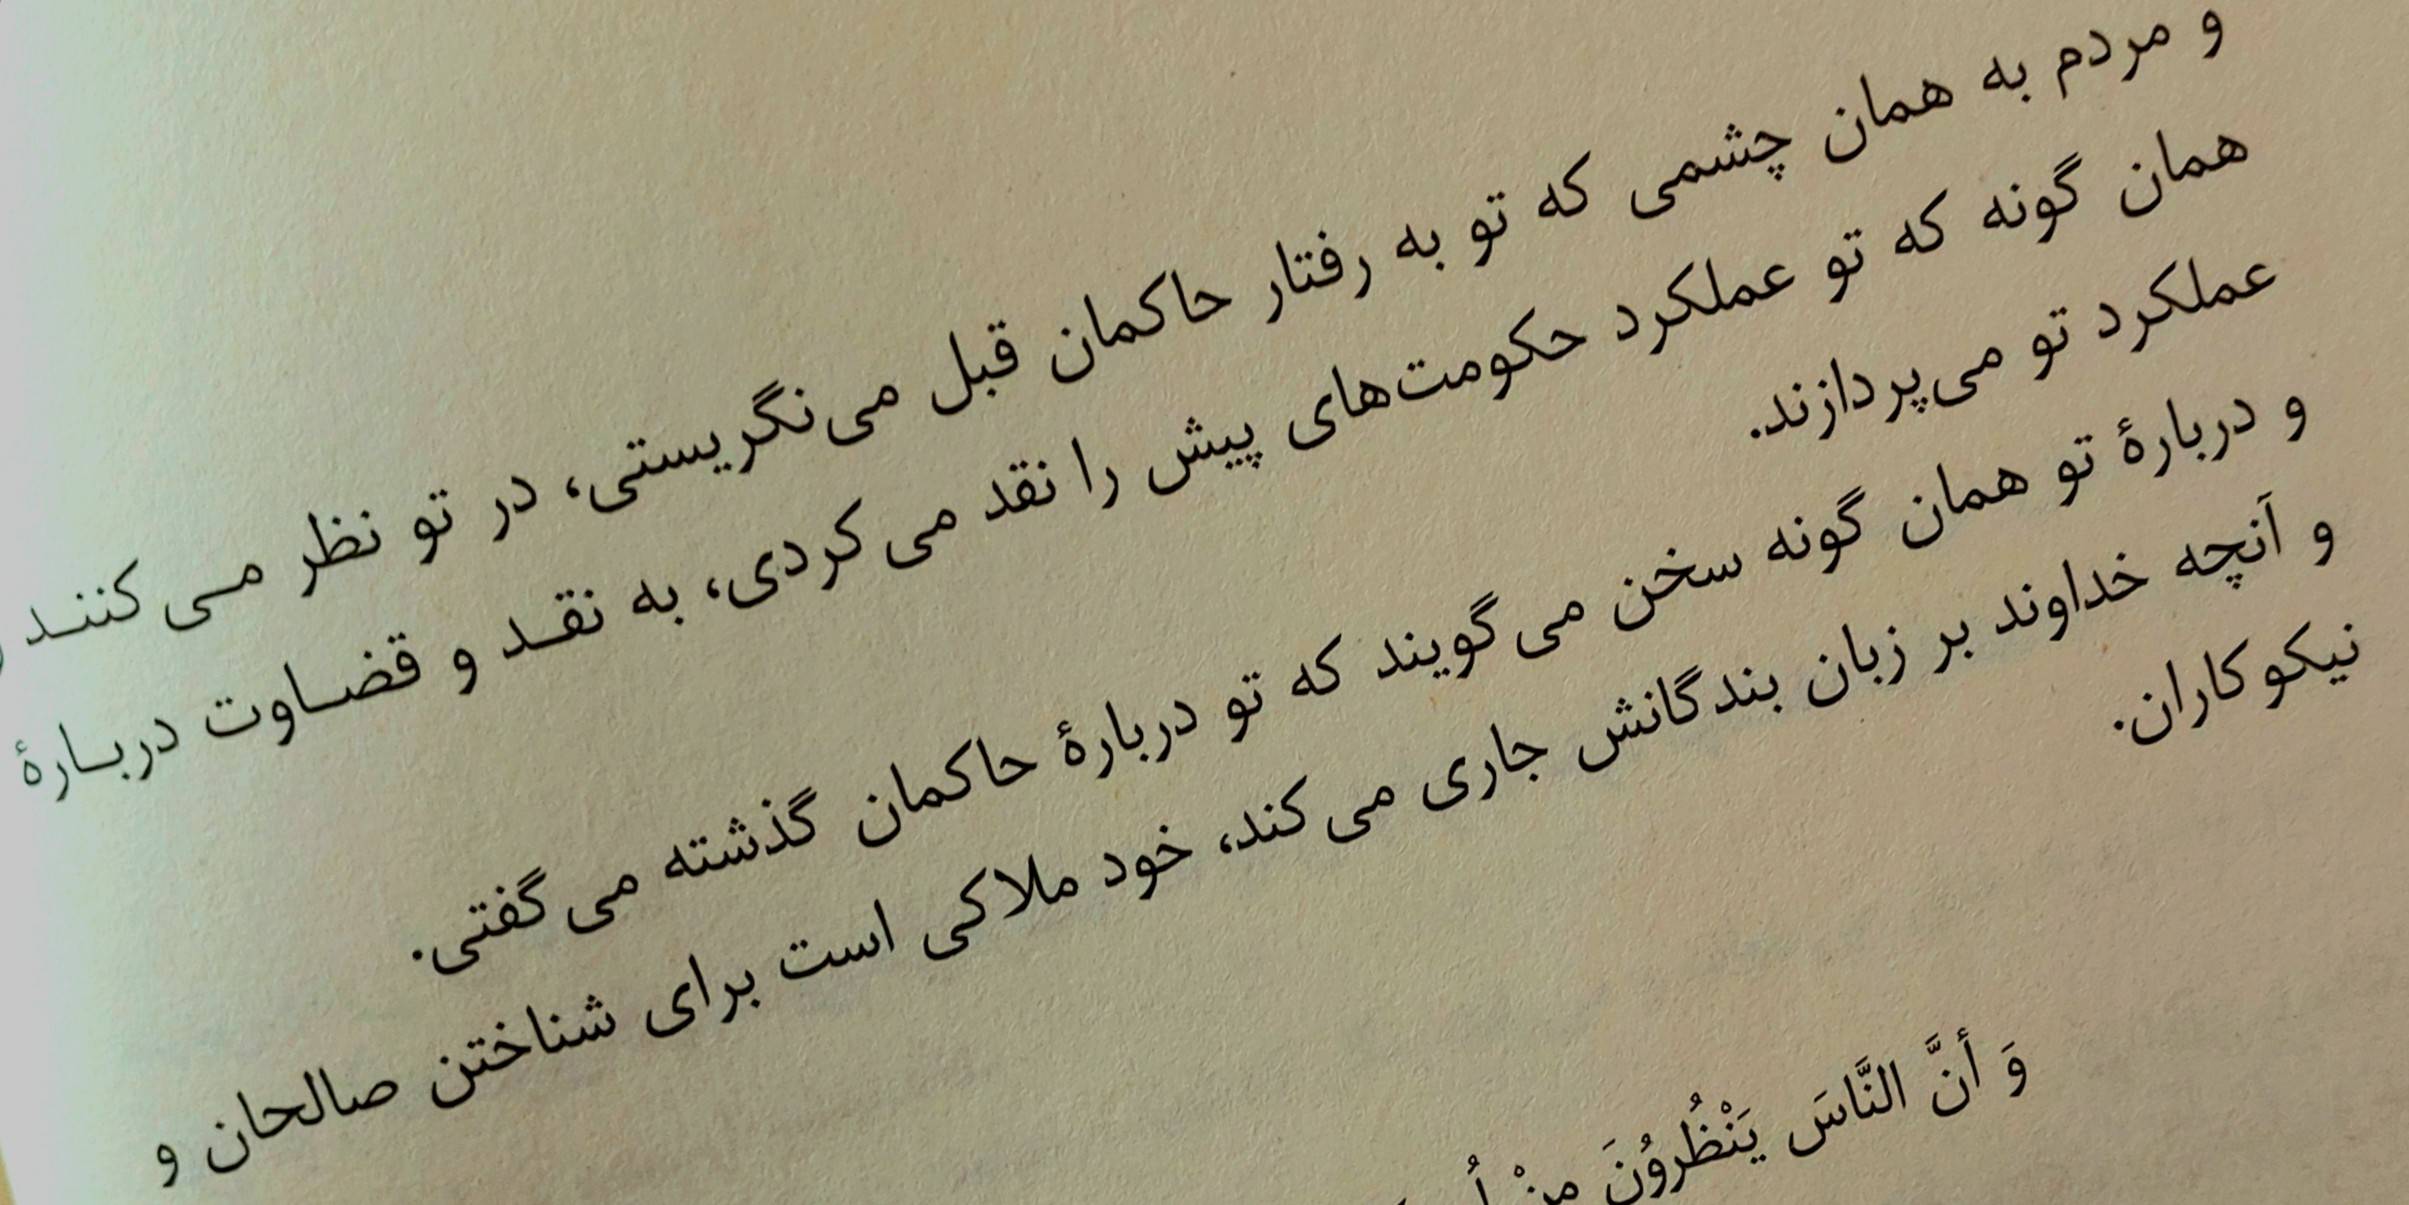 و مردم به همان چشمی که تو به رفتار حاکمان قبل می‌نگریستی، در تو نظر می‌کنند
همان گونه که تو عملکرد حکومت‌های پیش را نقد می‌کردی، به نقد و قضاوت دربارهٔ
عملکرد تو می‌پردازند.
و دربارهٔ تو همان گونه سخن می‌گویند که تو دربارهٔ حاکمان گذشته می‌گفتی.
و آنچه خداوند بر زبان بندگانش جاری می‌کند، خود ملاکی است برای شناختن صالحان و
نیکوکاران.
وَ أنَّ النَّاسَ يَنْظُرُونَ مِنْ